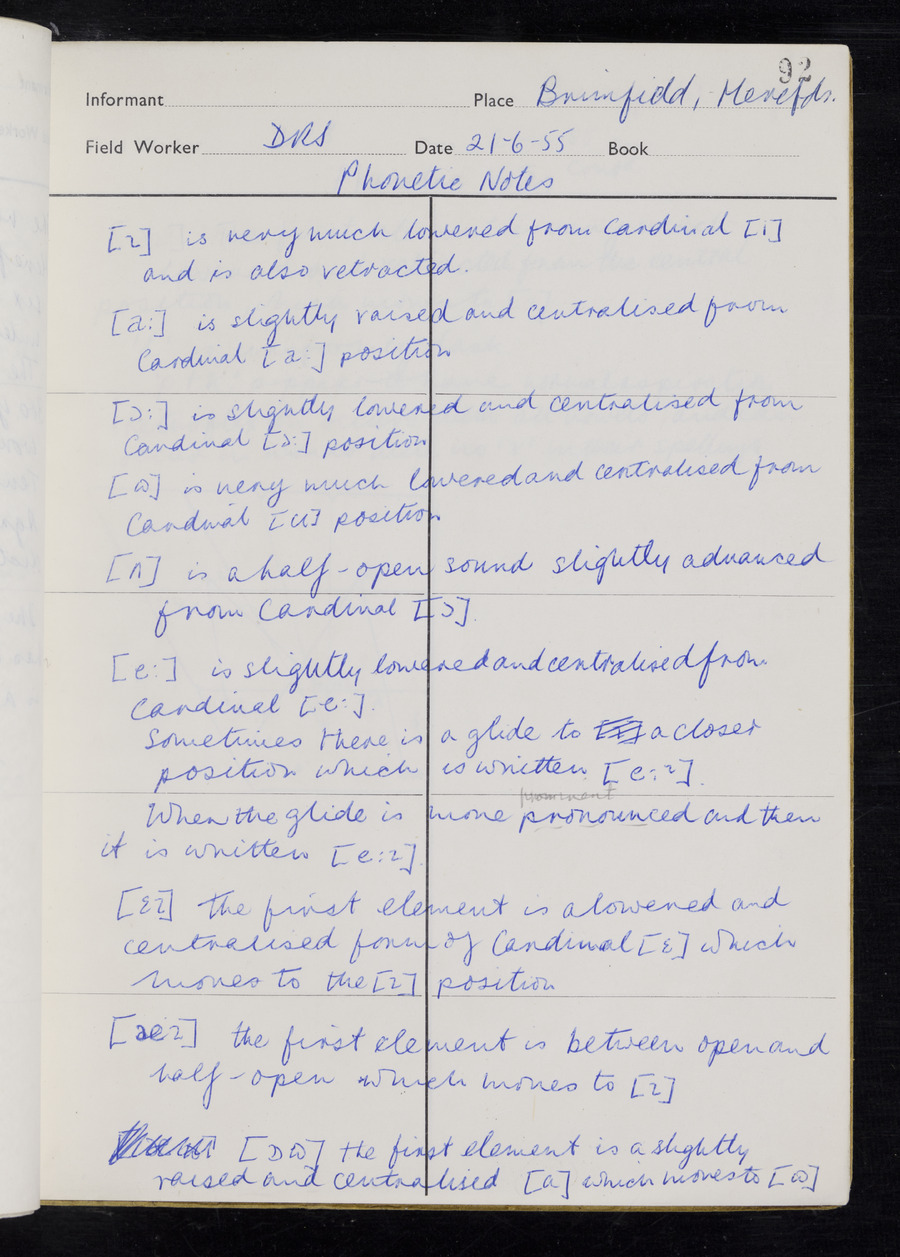 92
Informant Place Brimfield, Herefds.
Field Worker DRS Date 21-6-55 Book
Phonetic Notes
[ɩ] is very much lowered from Cardinal [i]
and is also retracted.
[a:] is slightly raised and centralised from
Cardinal [a:] position
[ɔ:] is slightly lowered and centralised from
Cardinal [ɔ:] position
[ɷ] is very much lowered and centralised from
Cardinal [u] position
[ʌ] is a half-open sound slightly advanced
from Cardinal [ɔ].
[e:] is slightly lowered and centralised from
Cardinal [e:].
Sometimes there is a glide to a closer
position which is written [e:ᶥ].
prominent
When the glide is more pronounced and then
it is written [e:ɩ].
[ɛɩ] the first element is a lowered and
centralised form of Cardinal [ɛ] which
moves to the [ɩ] position
[æɩ] the first element is between open and
half-open which moves to [ɩ]
[ɒɷ] the first element is a slightly
raised and centralised [ɑ] which moves to [ɷ]